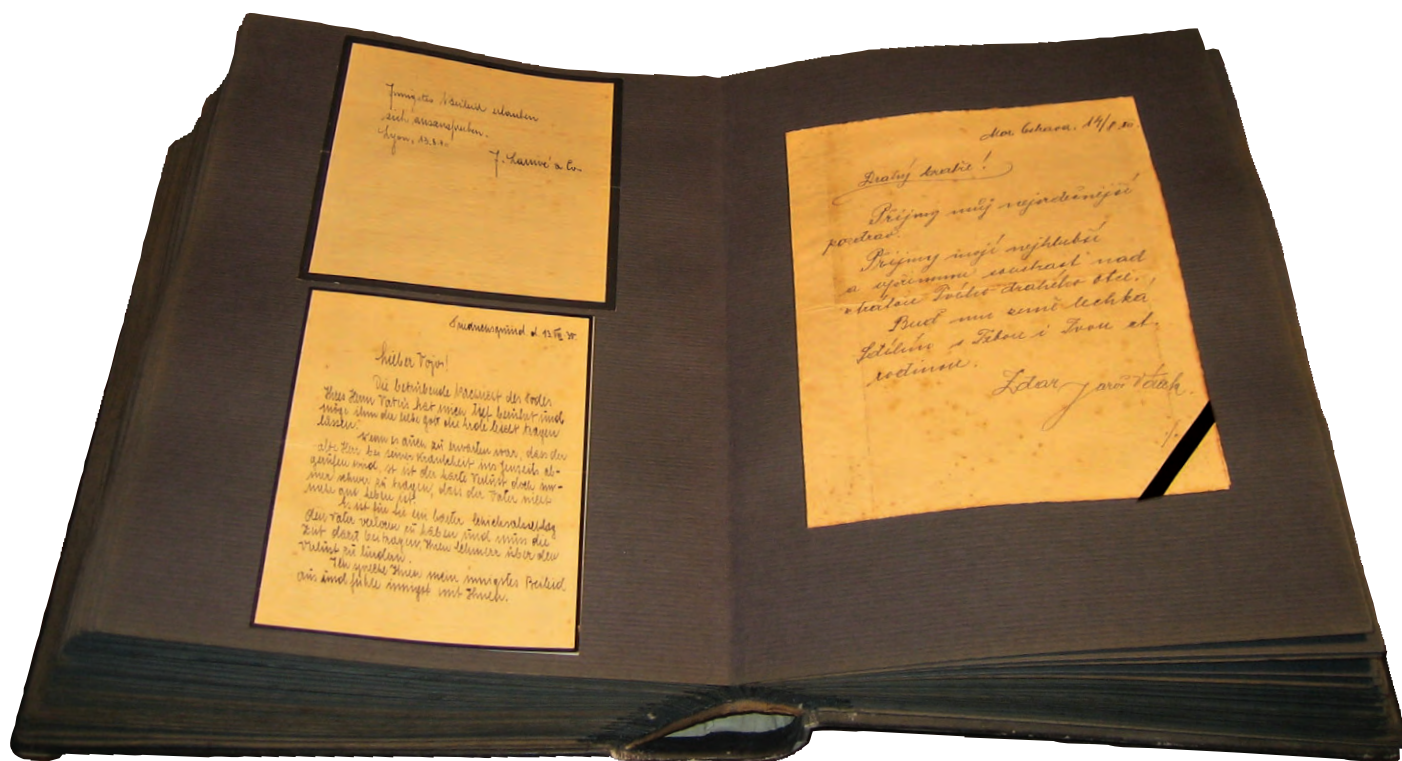 Innigstes Beileid erlauben
sich auszusprechen.
Lyon, 13.8.30.
J. & Co.
d. 13. VIII 30.
Lieber Vojo!
Die betrübende Nachricht des Todes
Ihres Herrn Vaters hat mich tief berührt und
möge ihm der liebe Gott die Erde leicht tragen
lassen.
Wenn es auch zu erwarten war, dass der
alte Herr bei seiner Krankheit ins Jenseits ab-
gerufen wird, so ist der harte Verlust doch im-
mer schwer zu tragen, dass der Vater nicht
mehr am Leben ist.
Es ist für Sie ein harter Schicksalsschlag
den Vater verloren zu haben und muss die
Zeit dazu beitragen, Ihren Schmerz über den
Verlust zu lindern.
Ich spreche Ihnen mein innigstes Beileid
aus und fühle innigst mit Ihnen.
Mor. Ostrava, 14/8 30.
Drahý bratře!
Přijmy můj nejsrdečnější
pozdrav.
Přijmy mojí nejhlubší
a upřímnou soustrast nad
ztrátou Tvého drahého otce.
Buď mu země lehká
Sdílím s Tebou i Tvou ct.
rodinou.
Zdar
./.